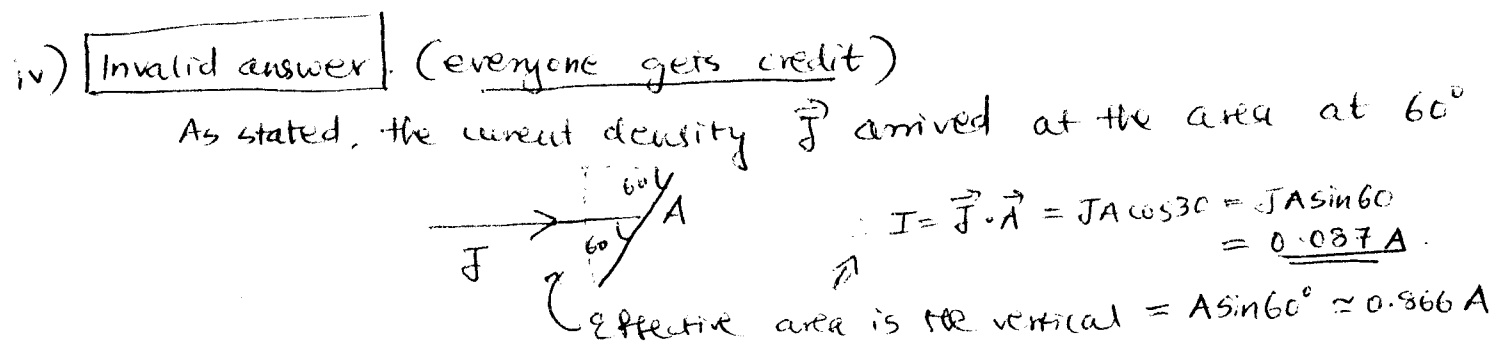 iv) Invalid answer. (everyone gets credit)
As stated, the current density J⃗ arrived at the area at 60°
60
A
60
J
∴ I = J⃗·A⃗ = JA cos30 = JA sin60
= 0.087 A.
Effective area is the vertical = A sin60° ≃ 0.866 A